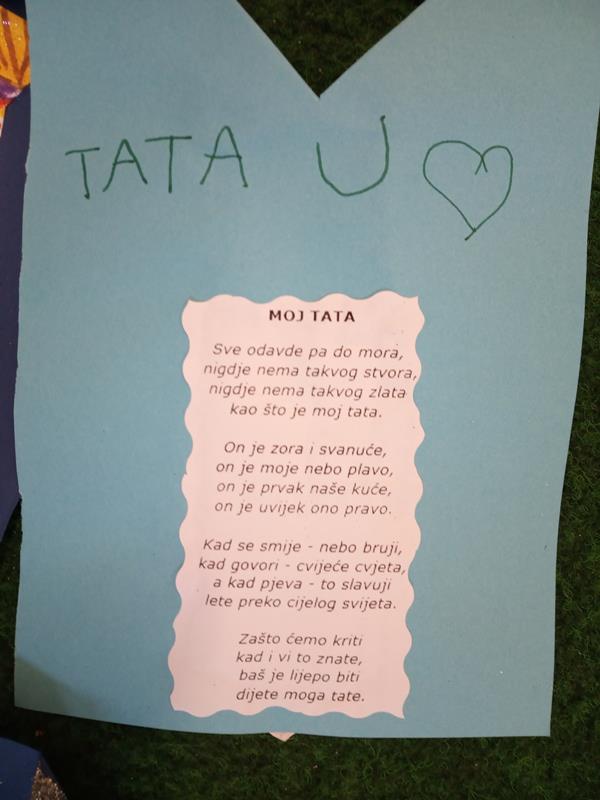 TATA U
MOJ TATA
Sve odavde pa do mora,
nigdje nema takvog stvora,
nigdje nema takvog zlata
kao što je moj tata.
On je zora i svanuće,
on je moje nebo plavo,
on je prvak naše kuće,
on je uvijek ono pravo.
Kad se smije - nebo bruji,
kad govori - cvijeće cvjeta,
a kad pjeva - to slavuji
lete preko cijelog svijeta.
Zašto ćemo kriti
kad i vi to znate,
baš je lijepo biti
dijete moga tate.